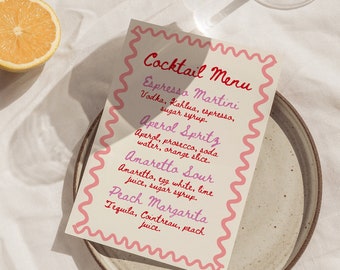 Cocktail Menu
Espresso Martini
Vodka, Kahlua, espresso,
sugar syrup.
Aperol Spritz
Aperol, prosecco, soda
water, orange slice.
Amaretto Sour
Amaretto, egg white, lime
juice, sugar syrup.
Peach Margarita
Tequila, Contreau, peach
juice.